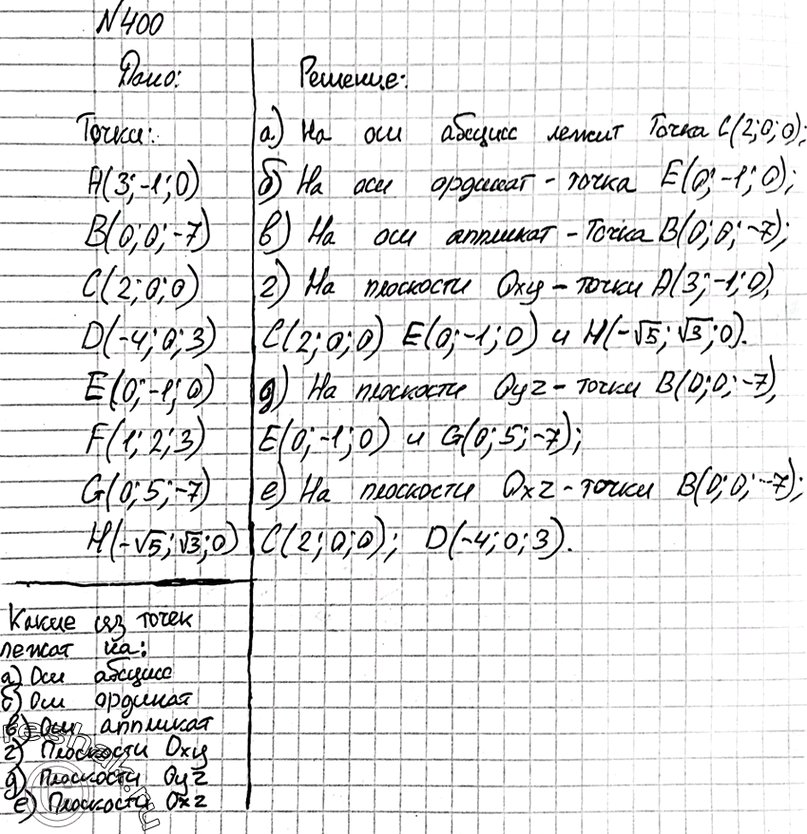 №400
Дано:
Решение:
Точки:
A(3;-1;0)
B(0;0;-7)
C(2;0;0)
D(-4;0;3)
E(0;-1;0)
F(1;2;3)
G(0;5;-7)
H(-√5;√3;0)
Какие из точек
лежат на:
а) Оси абсцисс
б) Оси ординат
в) Оси аппликат
г) Плоскости Oxy
д) Плоскости Oyz
е) Плоскости Oxz
а) На оси абсцисс лежит Точка C(2;0;0);
б) На оси ординат - точка E(0;-1;0);
в) На оси аппликат - Точка B(0;0;-7);
г) На плоскости Oxy - точки A(3;-1;0),
C(2;0;0) E(0;-1;0) и H(-√5;√3;0).
д) На плоскости Oyz - точки B(0;0;-7),
E(0;-1;0) и G(0;5;-7);
е) На плоскости Oxz - точки B(0;0;-7);
C(2;0;0); D(-4;0;3).
reshak.ru